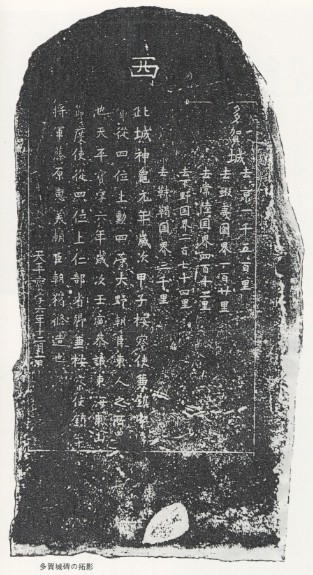 西
多賀城
去京一千五百里
去蝦夷国界一百廿里
去常陸国界四百十二里
去下野国界二百七十四里
去靺鞨国界三千里
此城神龜元年歳次甲子按察使兼鎮守将
軍從四位上勳四等大野朝臣東人之所置
也天平寶字六年歳次壬寅參議東海東山
節度使從四位上仁部省卿兼按察使鎮守
將軍藤原惠美朝臣朝獦修造也
天平寶字六年十二月一日
多賀城碑の拓影